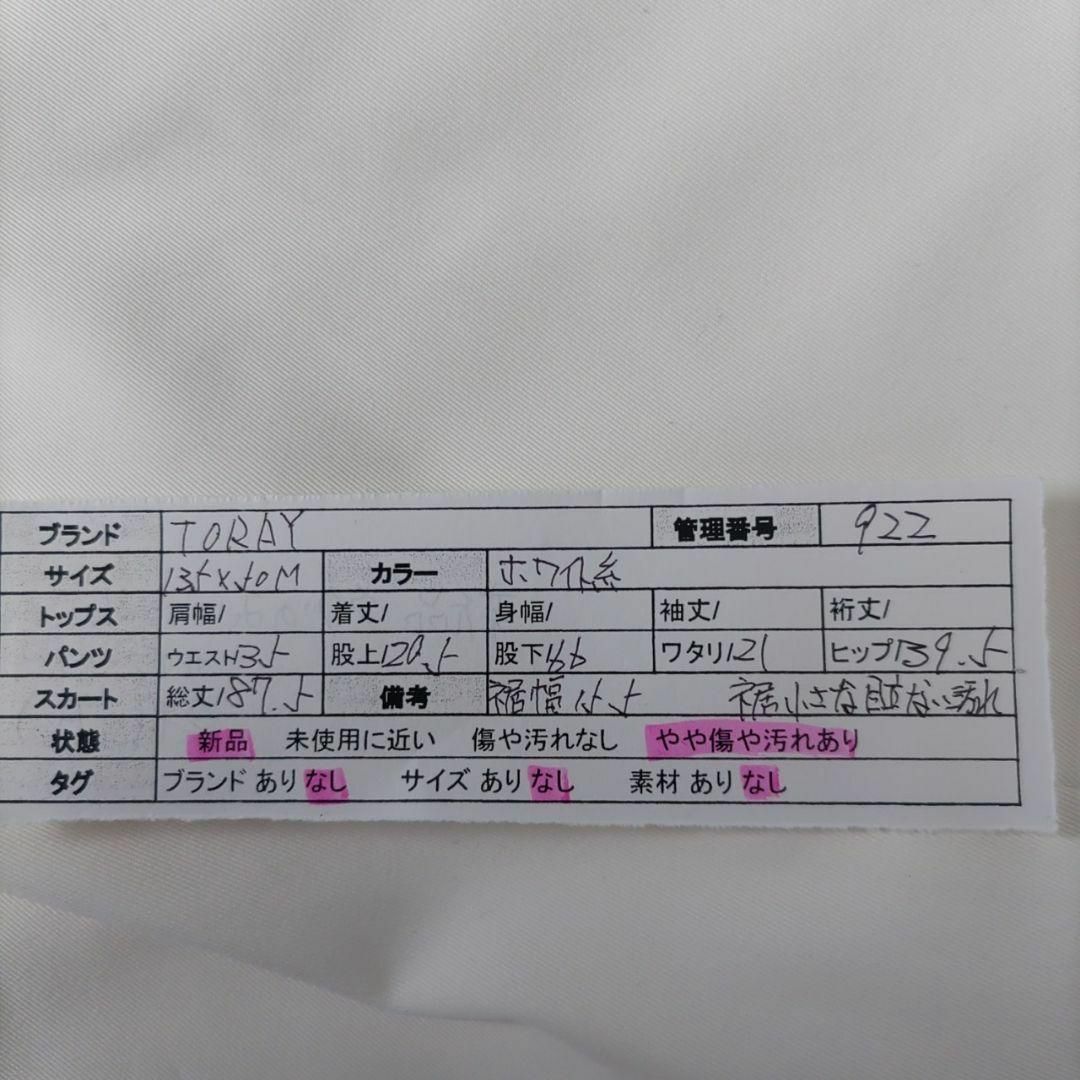 ブランド TORAY 管理番号 922
サイズ カラー ホワイト系
トップス 肩幅/ 着丈/ 身幅/ 袖丈/ 裄丈/
パンツ ウエスト/35 股上/20.5 股下/66 ワタリ/21 ヒップ/39.5
スカート 総丈/87.5 備考 裾幅15.5 裾小さな目立ない汚れ
状態 新品 未使用に近い 傷や汚れなし やや傷や汚れあり
タグ ブランド あり なし サイズ あり なし 素材 あり なし